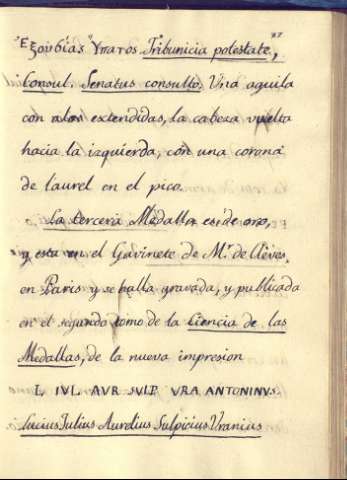 "Εξουσίας" Υπατος Tribunicia potestate,"
Consul. Senatus consulto. Una aguila
con alas extendidas, la cabeza vuelta
hacia la izquierda, con una corona
de laurel en el pico.
La tercera Medalla es de oro,
y esta en el Gavinete de Mr. de Cleves
en Paris y se halla gravada, y publicada
en el segundo tomo de la Ciencia de las
Medallas, de la nueva impresion
L. IUL. AUR. SULP. URA. ANTONINUS.
Lucius Julius Aurelius Sulpicius Uranius